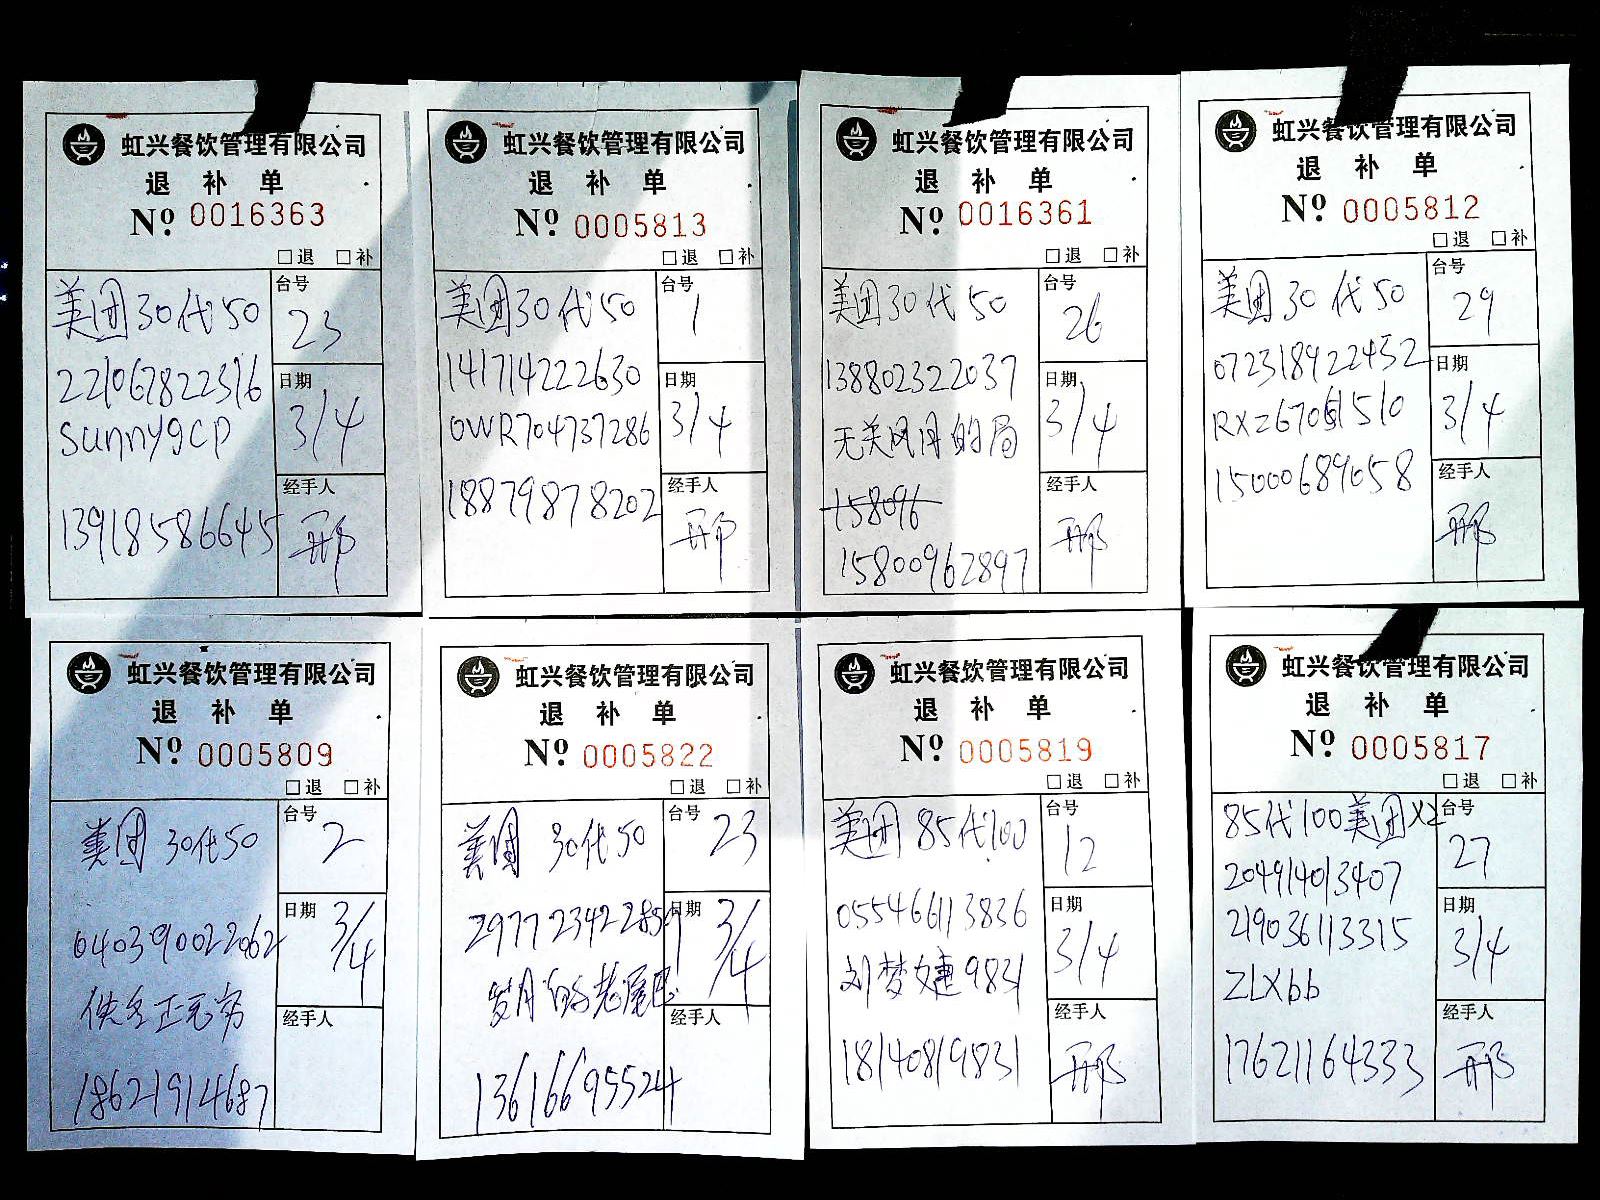 虹兴餐饮管理有限公司
退 补 单
Nº 0016363
□退 □补
美团30代50
221067822516
sunny9cp
13918586645
台号
23
日期
3/4
经手人
邢
虹兴餐饮管理有限公司
退 补 单
Nº 0005813
□退 □补
美团30代50
141714222630
OWR704737286
18879878202
台号
1
日期
3/4
经手人
邢
虹兴餐饮管理有限公司
退 补 单
Nº 0016361
□退 □补
美团30代50
138802322037
无关风月的局
158096
15800962897
台号
26
日期
3/4
经手人
邢
虹兴餐饮管理有限公司
退 补 单
Nº 0005812
□退 □补
美团30代50
072318922452
15000689058
台号
29
日期
3/4
经手人
邢
虹兴餐饮管理有限公司
退 补 单
Nº 0005809
□退 □补
美团30代50
040390022062
18621914687
台号
2
日期
3/4
经手人
虹兴餐饮管理有限公司
退 补 单
Nº 0005822
□退 □补
美团 30代50
297723422859
岁月的老尾巴
13616695524
台号
23
日期
3/4
经手人
虹兴餐饮管理有限公司
退 补 单
Nº 0005819
□退 □补
美团85代100
055466113836
刘梦婕9831
18140819831
台号
12
日期
3/4
经手人
邢
虹兴餐饮管理有限公司
退 补 单
Nº 0005817
□退 □补
85代100美团X2
204914013407
219036113315
ZLXbb
17621164333
台号
27
日期
3/4
经手人
邢